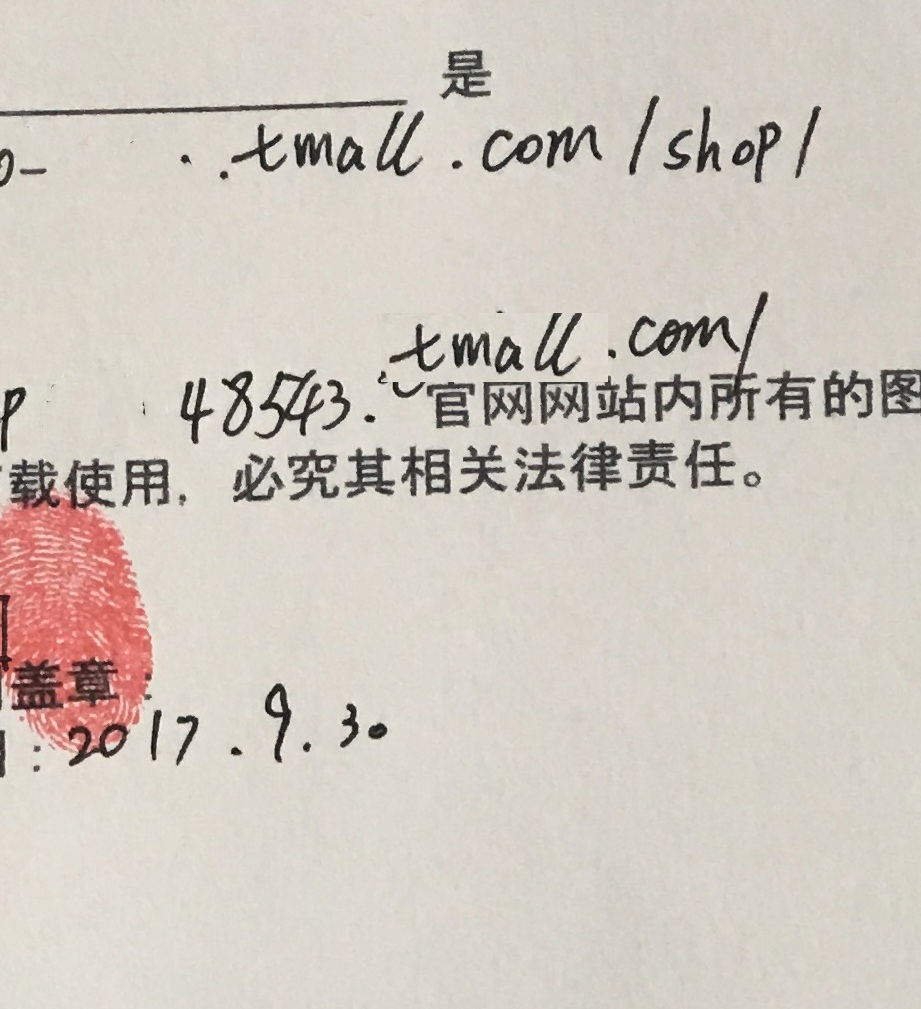 是
.tmall.com/shop/
tmall.com/
48543. 官网网站内所有的图
载使用，必究其相关法律责任。
盖章：
：2017.9.30